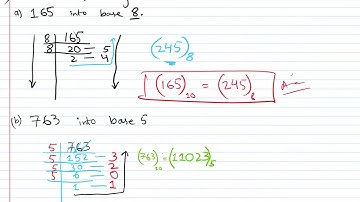 a) 165 into base 8.
8 165
8 20 — 5
2 — 4
(245)8
(165)10 = (245)8
(b) 763 into base 5
5 763
5 152 — 3
5 30 — 2
5 6 — 0
1 — 1
(763)10 = (11023)5